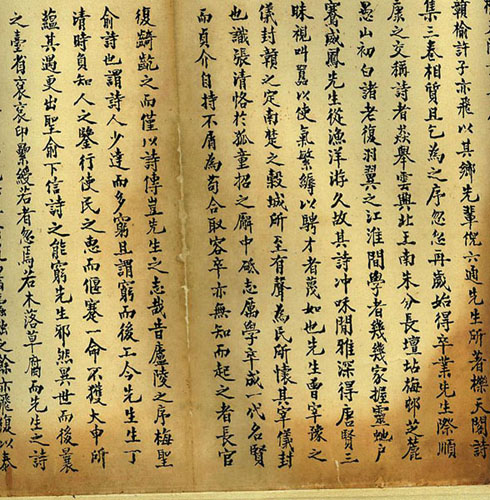 贛榆許子亦飛以其鄉先輩倪六通先生所著櫟天閣詩
集三卷相質且乞為之序忽忽再歲始得卒業先生際順
康之交稱詩者焱舉雲興北王南朱分長壇坫梅邨芝麓
愚山初白諸老復羽翼之江淮間學者幾幾家握靈虵戶
騫威鳳先生從漁洋游久故其詩冲味閒雅深得唐賢三
昧視叫囂以使氣繁縟以騁才者蔑如也先生曾宰豫之
儀封贛之定南楚之穀城所至有聲為民所懷其宰儀封
也識張清恪於孤童招之廨中砥志厲學卒成一代名賢
而貞介自持不屑為苟合取容卒亦無知而起之者長官
復齮齕之而僅以詩傳豈先生之志哉昔廬陵之序梅聖
俞詩也謂詩人少達而多窮且謂窮而後工今先生生丁
清時負知人之鑒行使民之惠而偃蹇一命不獲大申所
蘊其遇更出聖俞下信詩之能窮先生邪然異世而後曩
之臺省裒裒印纍綬若者忽焉若木落草腐而先生之詩
蝕之餘亦飛復以